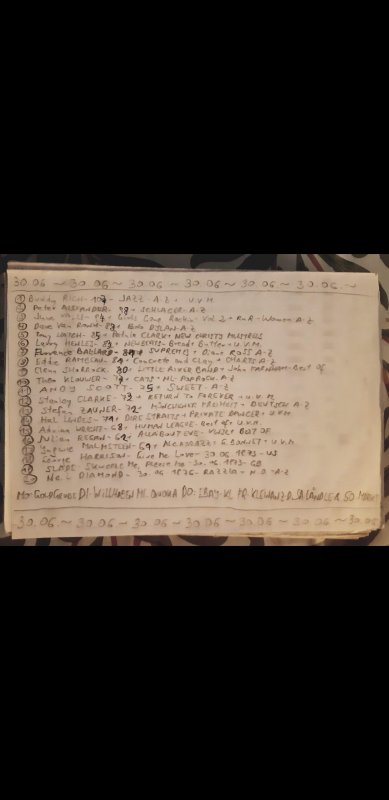 30.06 ~ 30.06 ~ 30.06 ~ 30.06 ~ 30.06 ~ 30.06 ~
① Buddy RICH - 107 - JAZZ - A-Z + U.V.M.
② Peter ALEXANDER - 98 + SCHLAGER A-Z
③ - 84 + Girls Gone Rockin Vol 2 + RnR - Women A-Z
④ Dave Van RONK - 88 + Bob DYLAN A-Z
⑤ Tony HATCH - Petula CLARK + NEW CHRISTY MINSTRELS
⑥ Larry HENLEY - + NEWBEATS - Bread + Butter + U.V.M.
⑦ Florence BALLARD - SUPREMES + Diana ROSS A-Z
⑧ Eddie RAMBEAU - + Concrete and Clay + CHARTS A-Z
⑨ Glenn SHORROCK - 80 - LITTLE RIVER BAND + John FARNHAM - Best Of
⑩ - CATS + NL - POPROCK A-Z
⑪ ANDY SCOTT - 75 + SWEET - A-Z
⑫ Stanley CLARKE - 73 + RETURN TO FOREVER + U.V.M.
⑬ Stefan ZAUNER - 72 + MÜNCHENER FREIHEIT + DEUTSCH A-Z
⑭ Hal LINDES - 71 + DIRE STRAITS + PRIVATE DANCER + U.V.M.
⑮ Adrian WRIGHT - 68 + HUMAN LEAGUE - Best of + U.V.M.
⑯ Julian REGAN - 62 + ALL ABOUT EVE - BEST OF
⑰ Yngwie MALMSTEEN - 61 + ALCATRAZZ + G. BONNET + U.V.M.
⑱ George HARRISON - Give Me Love - 30.06.1973 - US
⑲ SLADE - SKWEEZE Me, PLEEZE Me - 30.06.1973 - GB
⑳ Neil DIAMOND - 30.06.1976 - RAZZIA + N.D. - A-Z
MO: DI: MI: DO: EBAY-KL FR: SA: SO:
30.06 ~ 30.06 ~ 30.06 ~ 30.06 ~ 30.06 ~ 30.06